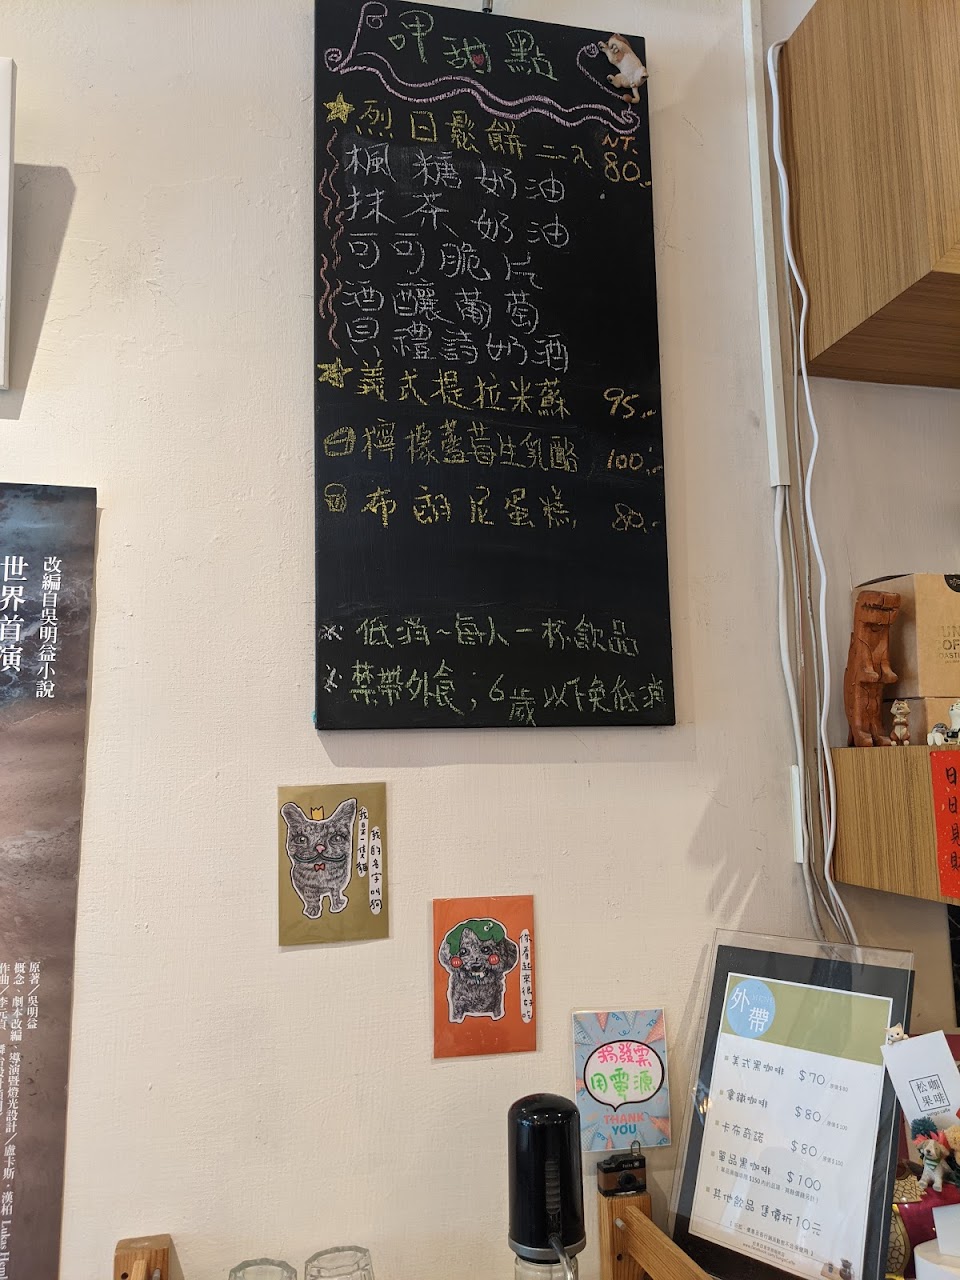 呷甜點
烈日鬆餅二入 NT.80.-
楓糖奶油
抹茶奶油
可可脆片
酒釀葡萄
貝禮詩奶酒
義式提拉米蘇 95.-
檸檬藍莓生乳酪 100.-
布朗尼蛋糕 80.-
※低消~每人一杯飲品
※禁帶外食；6歲以下免低消
改編自吳明益小說
世界首演
原著／吳明益
概念、劇本改編、導演暨燈光設計／盧卡斯．漢柏
作曲／李元貞
我是一隻貓
我的名字叫狗
你看起來很好吃
捐發票
用電源
THANK
YOU
外帶
美式黑咖啡 $70
拿鐵咖啡 $80
卡布奇諾 $80
單品黑咖啡 $100
其他飲品 售價折10元
松果
咖啡
日日見財